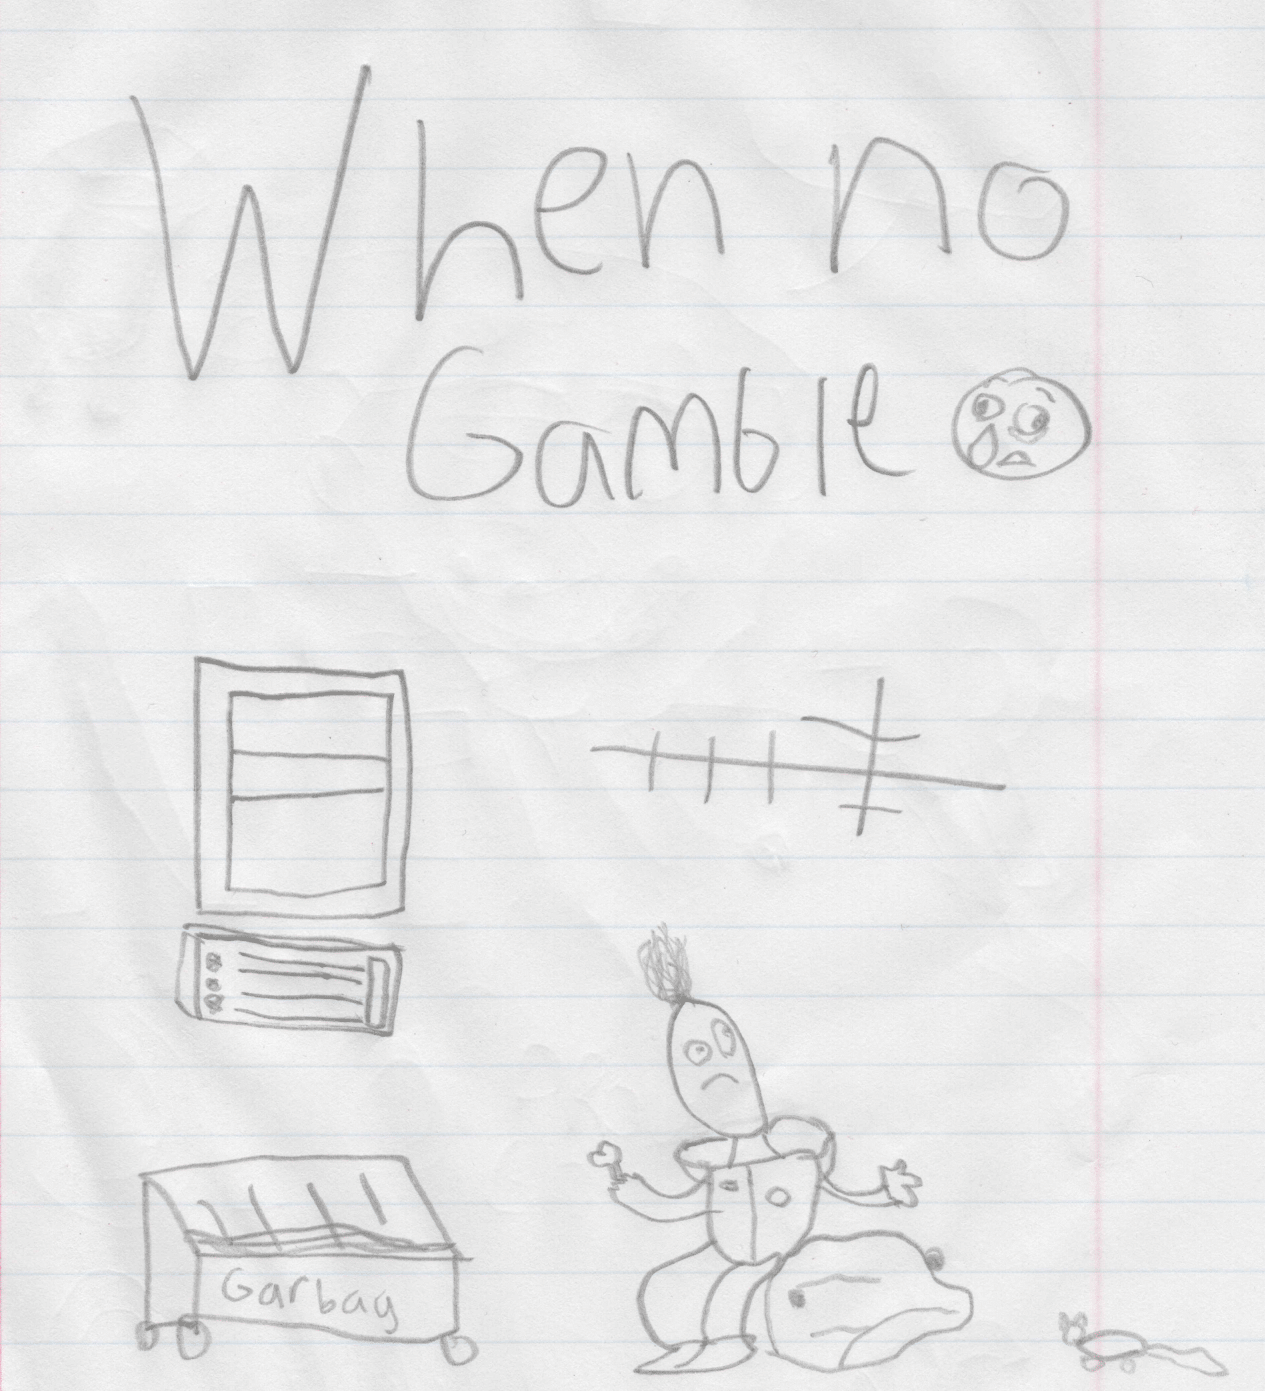 When no
Gamble
Garbag